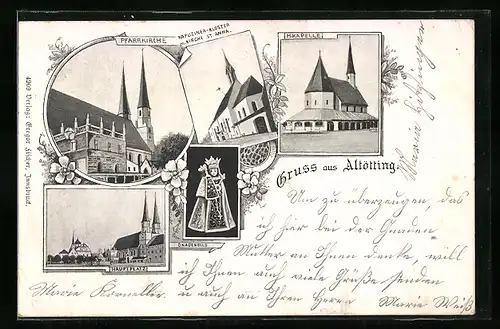 PFARRKIRCHE
KAPUZINER-KLOSTER
KIRCHE ST. ANNA.
HL. KAPELLE
4909 Verlag: Gregor Fischer, Innsbruck.
Gruss aus Altötting.
GNADENBILD
HAUPTPLATZ
Um zu überzeugen, das
ich hier bei der Gnaden
Mutter an Ihnen denke, will
ich Ihnen auch viele Grüße senden
u. auch an Ihren Herrn
Marie Weiß
Marie
Maria